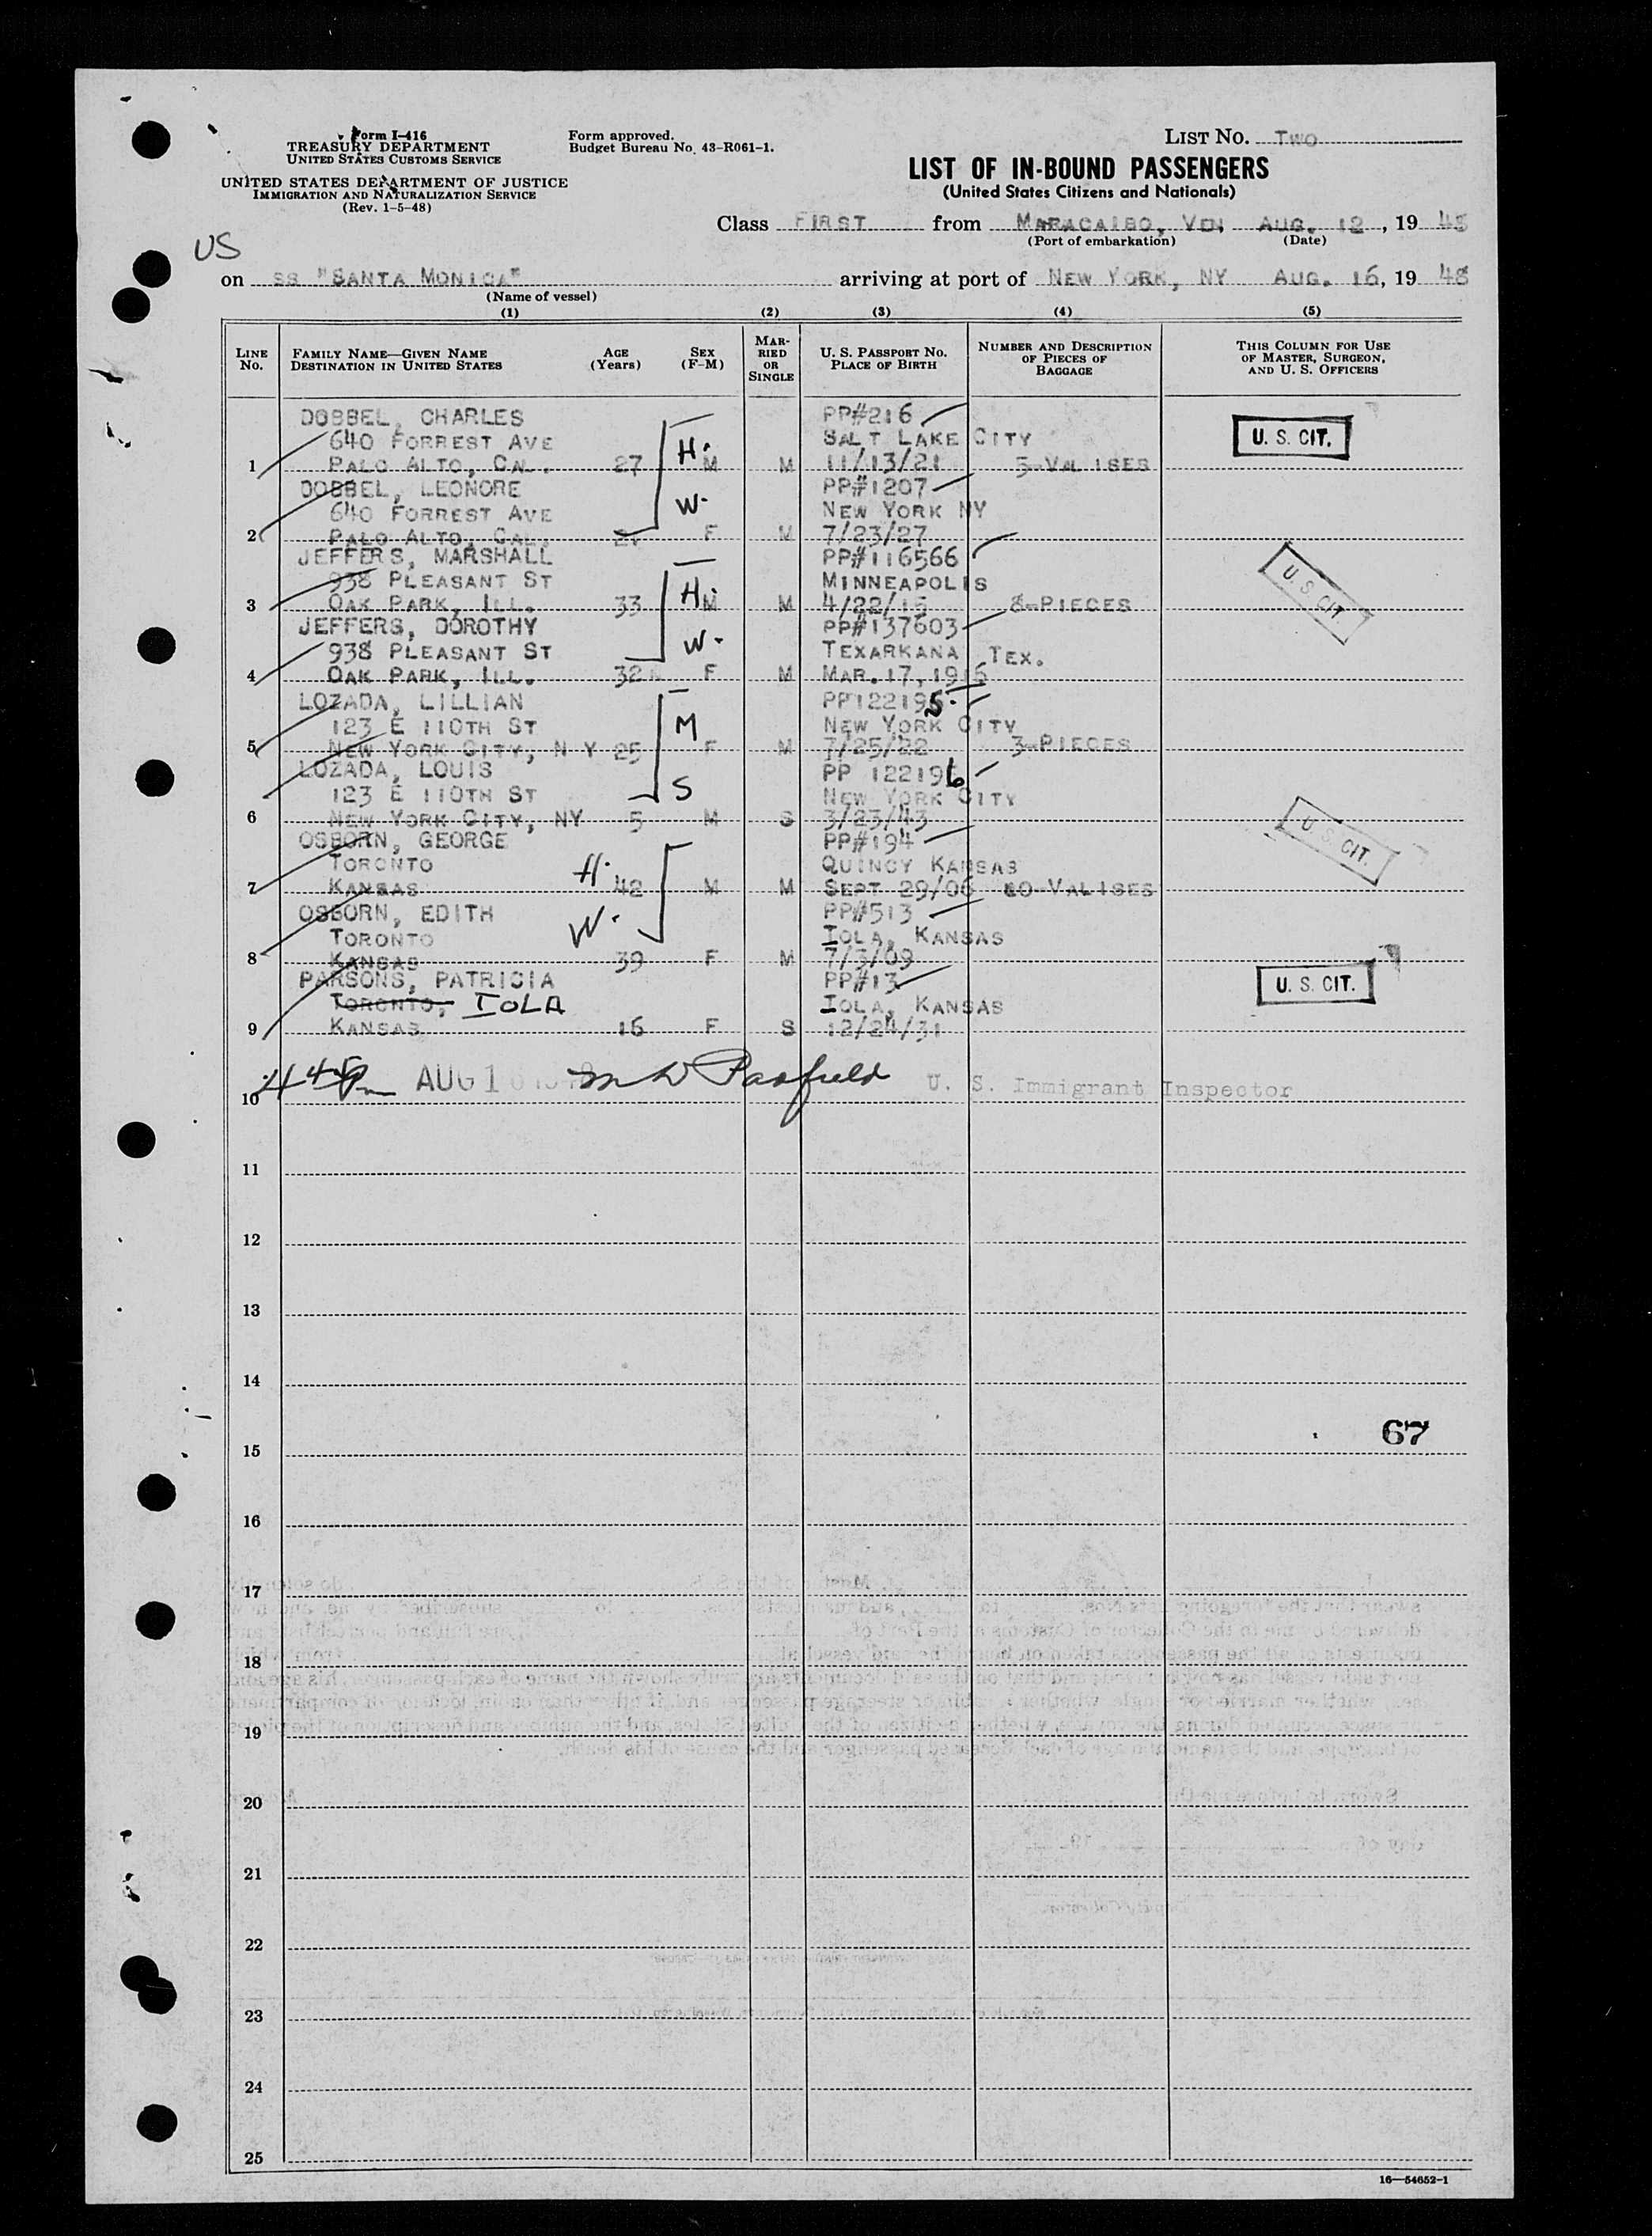 Form I-416
TREASURY DEPARTMENT
UNITED STATES CUSTOMS SERVICE
UNITED STATES DEPARTMENT OF JUSTICE
IMMIGRATION AND NATURALIZATION SERVICE
(Rev. 1-5-48)
Form approved.
Budget Bureau No. 43-R061-1.
LIST NO. TWO
LIST OF IN-BOUND PASSENGERS
(United States Citizens and Nationals)
Class FIRST from MARACAIBO, VEN, AUG. 12, 19 48
(Port of embarkation) (Date)
US
on SS "SANTA MONICA" arriving at port of NEW YORK, NY AUG. 16, 19 48
(Name of vessel)
(1) (2) (3) (4) (5)
LINE NO. FAMILY NAME—GIVEN NAME DESTINATION IN UNITED STATES AGE (Years) SEX (F-M) MARRIED OR SINGLE U. S. PASSPORT NO. PLACE OF BIRTH NUMBER AND DESCRIPTION OF PIECES OF BAGGAGE THIS COLUMN FOR USE OF MASTER, SURGEON, AND U. S. OFFICERS
DOBBEL, CHARLES PP#216
640 FORREST AVE H. SALT LAKE CITY U. S. CIT.
1 PALO ALTO, CAL. 27 M M 11/13/21 5-VALISES
DOBBEL, LEONORE PP#1207
640 FORREST AVE W. NEW YORK NY
2 PALO ALTO, CAL. 21 F M 7/23/27
JEFFERS, MARSHALL PP#116566
938 PLEASANT ST H. MINNEAPOLIS U. S. CIT.
3 OAK PARK, ILL. 33 M M 4/22/15 8-PIECES
JEFFERS, DOROTHY PP#137603
938 PLEASANT ST W. TEXARKANA, TEX.
4 OAK PARK, ILL. 32 F M MAR. 17, 1916
LOZADA, LILLIAN PP122195
123 E 110TH ST M NEW YORK CITY
5 NEW YORK CITY, N Y 25 F M 7/25/22 3-PIECES
LOZADA, LOUIS PP 122196
123 E 110TH ST S NEW YORK CITY
6 NEW YORK CITY, NY 5 M S 3/23/43
OSBORN, GEORGE PP#194 U. S. CIT.
TORONTO H. QUINCY KANSAS
7 KANSAS 42 M M SEPT 29/06 10-VALISES
OSBORN, EDITH W. PP#513
TORONTO IOLA, KANSAS
8 KANSAS 39 F M 7/3/09
PARSONS, PATRICIA PP#13 U. S. CIT.
TORONTO, IOLA IOLA, KANSAS
9 KANSAS 16 F S 12/24/31
10 AUG 16 1948 U. S. Immigrant Inspector
11
12
13
14
67
15
16
17
18
19
20
21
22
23
24
25
16—54652-1